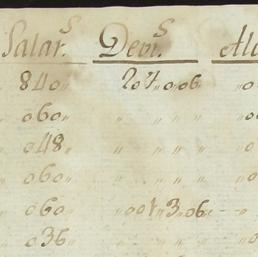 Salar.s Devi.s Al
840〃 204〃006 〃0
060〃 〃 〃 〃 〃 〃0
048〃 〃 〃 〃 〃 〃
060〃 〃 〃 〃 〃 〃0
060〃 〃001〃3〃06〃 〃0
036〃 〃 〃 〃 〃 〃0